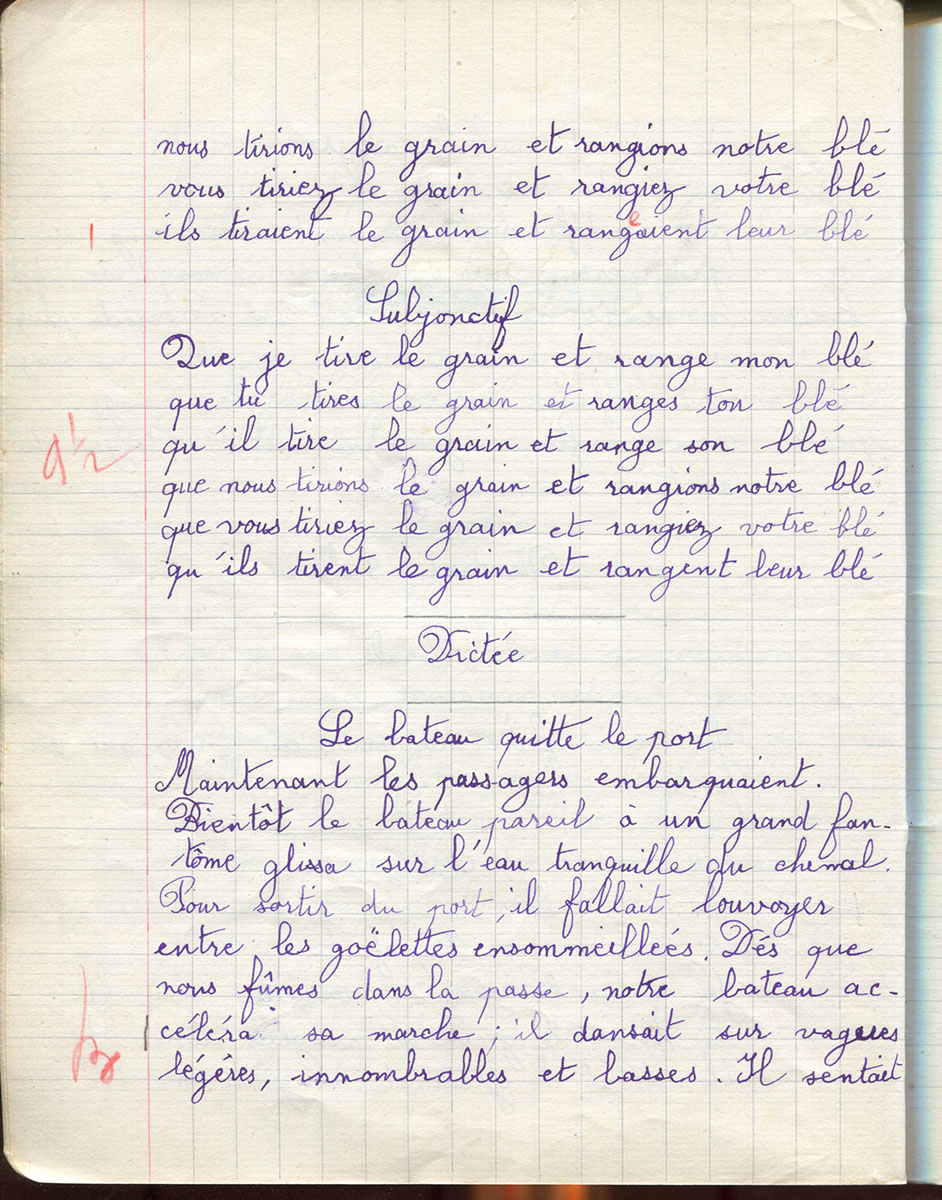 nous tirions le grain et rangions notre blé
vous tiriez le grain et rangiez votre blé
ils tiraient le grain et rangeaient leur blé
Subjonctif
Que je tire le grain et range mon blé
que tu tires le grain et ranges ton blé
qu'il tire le grain et range son blé
9 1/2
que nous tirions le grain et rangions notre blé
que vous tiriez le grain et rangiez votre blé
qu'ils tirent le grain et rangent leur blé
Dictée
Le bateau quitte le port
Maintenant les passagers embarquaient.
Bientôt le bateau pareil à un grand fan-
tôme glissa sur l'eau tranquille du chenal.
Pour sortir du port, il fallait louvoyer
entre les goëlettes ensommeilleés. Dés que
nous fûmes dans la passe, notre bateau ac-
céléra sa marche; il dansait sur vagues
légéres, innombrables et basses. Il sentait